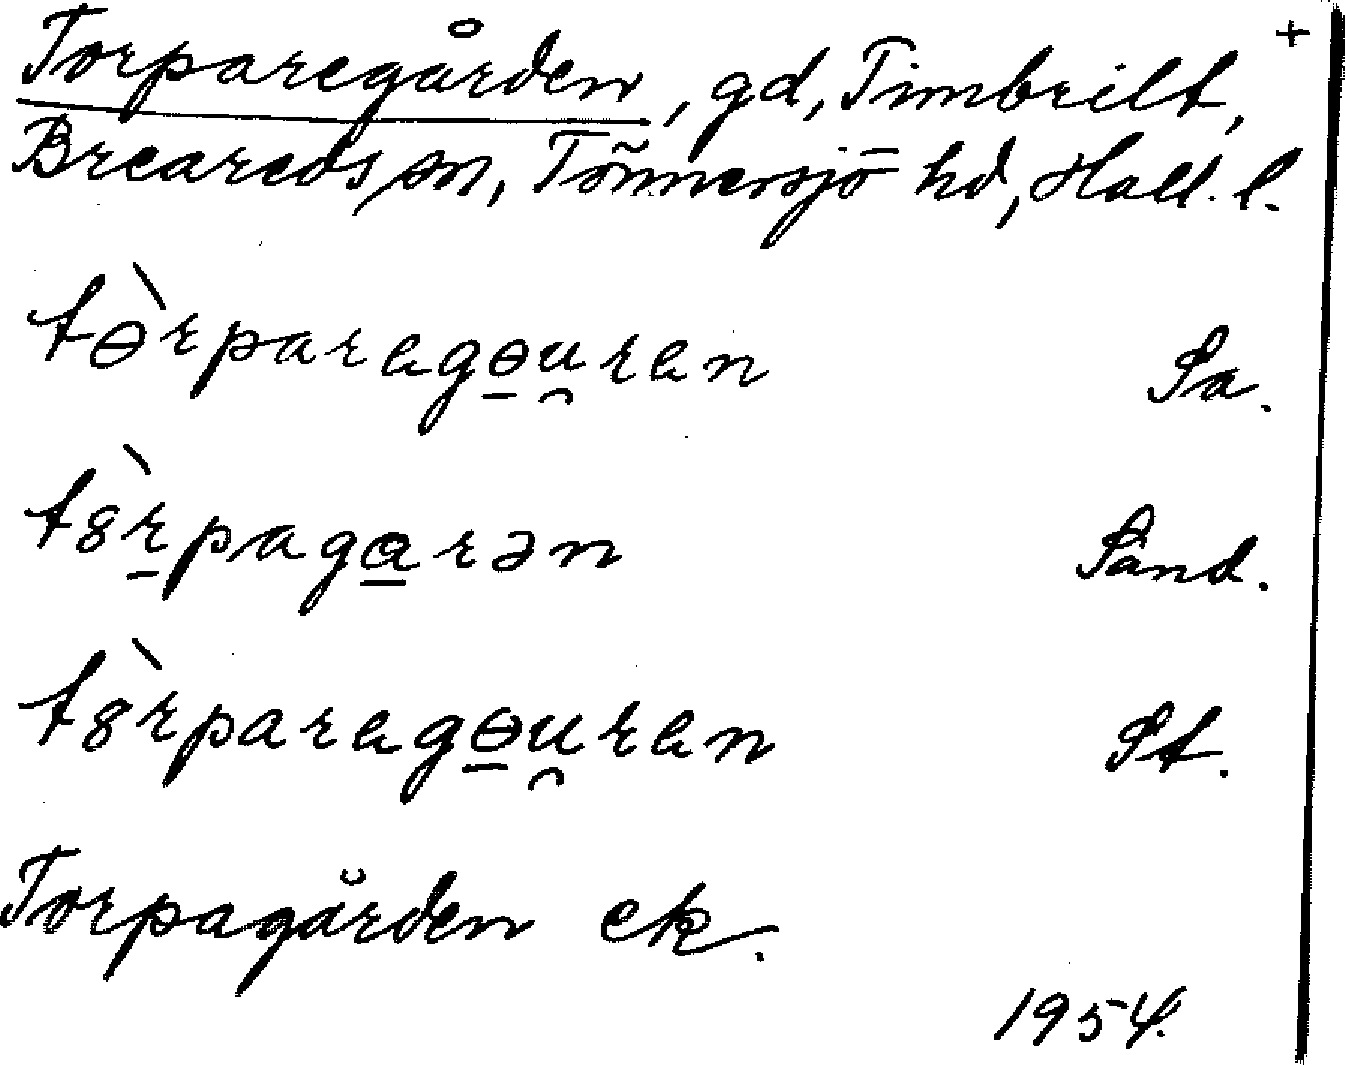 Torparegården, gd, Timbrilt, +
Breareds sn, Tönnersjö hd, Hall. l.
tɵ̀rparagɵ̠u̯ran Sa.
t8r̠̀paga̠rən Sand.
t8̀rparagɵ̠u̯ran St.
Torpagården ek.
1954.